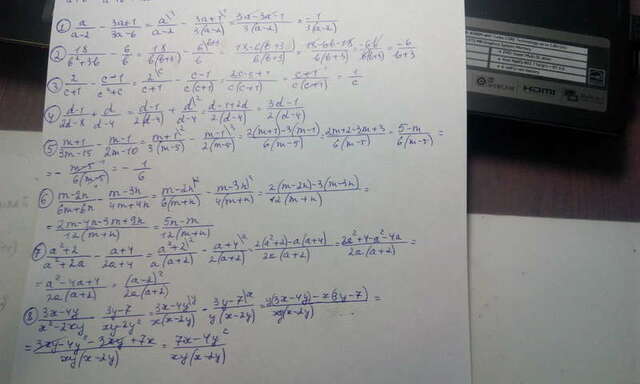 ① a/(a-2) - (3a+1)/(3a-6) = a\³/(a-2) - (3a+1)/(3(a-2)) = (3a-3a-1)/(3(a-2)) = -1/(3(a-2))
② 18/(b²+3b) - 6/b = 18/(b(b+3)) - 6\b+3/b = (18-6(b+3))/(b(b+3)) = (18-6b-18)/(b(b+3)) = -6b/(b(b+3)) = -6/(b+3)
③ 2/(c+1) - (c-1)/(c²+c) = 2\c/(c+1) - (c-1)/(c(c+1)) = (2c-c+1)/(c(c+1)) = (c+1)/(c(c+1)) = 1/c
④ (d-1)/(2d-8) + d/(d-4) = (d-1)/(2(d-4)) + d\²/(d-4) = (d-1+2d)/(2(d-4)) = (3d-1)/(2(d-4))
⑤ (m+1)/(3m-15) - (m-1)/(2m-10) = (m+1)\²/(3(m-5)) - (m-1)\³/(2(m-5)) = (2(m+1)-3(m-1))/(6(m-5)) = (2m+2-3m+3)/(6(m-5)) = (5-m)/(6(m-5)) =
= - (m-5)/(6(m-5)) = - 1/6
⑥ (m-2n)/(6m+6n) - (m-3n)/(4m+4n) = (m-2n)\²/(6(m+n)) - (m-3n)\³/(4(m+n)) = (2(m-2n)-3(m-3n))/(12(m+n)) =
= (2m-4n-3m+9n)/(12(m+n)) = (5n-m)/(12(m+n))
⑦ (a²+2)/(a²+2a) - (a+4)/(2a+4) = (a²+2)\²/(a(a+2)) - (a+4)\a/(2(a+2)) = (2(a²+2)-a(a+4))/(2a(a+2)) = (2a²+4-a²-4a)/(2a(a+2)) =
= (a²-4a+4)/(2a(a+2)) = (a-2)²/(2a(a+2))
⑧ (3x-4y)/(x²-2xy) - (3y-7)/(xy-2y²) = (3x-4y)\y/(x(x-2y)) - (3y-7)\x/(y(x-2y)) = (y(3x-4y)-x(3y-7))/(xy(x-2y)) =
= (3xy-4y²-3xy+7x)/(xy(x-2y)) = (7x-4y²)/(xy(x-2y))
HDMI